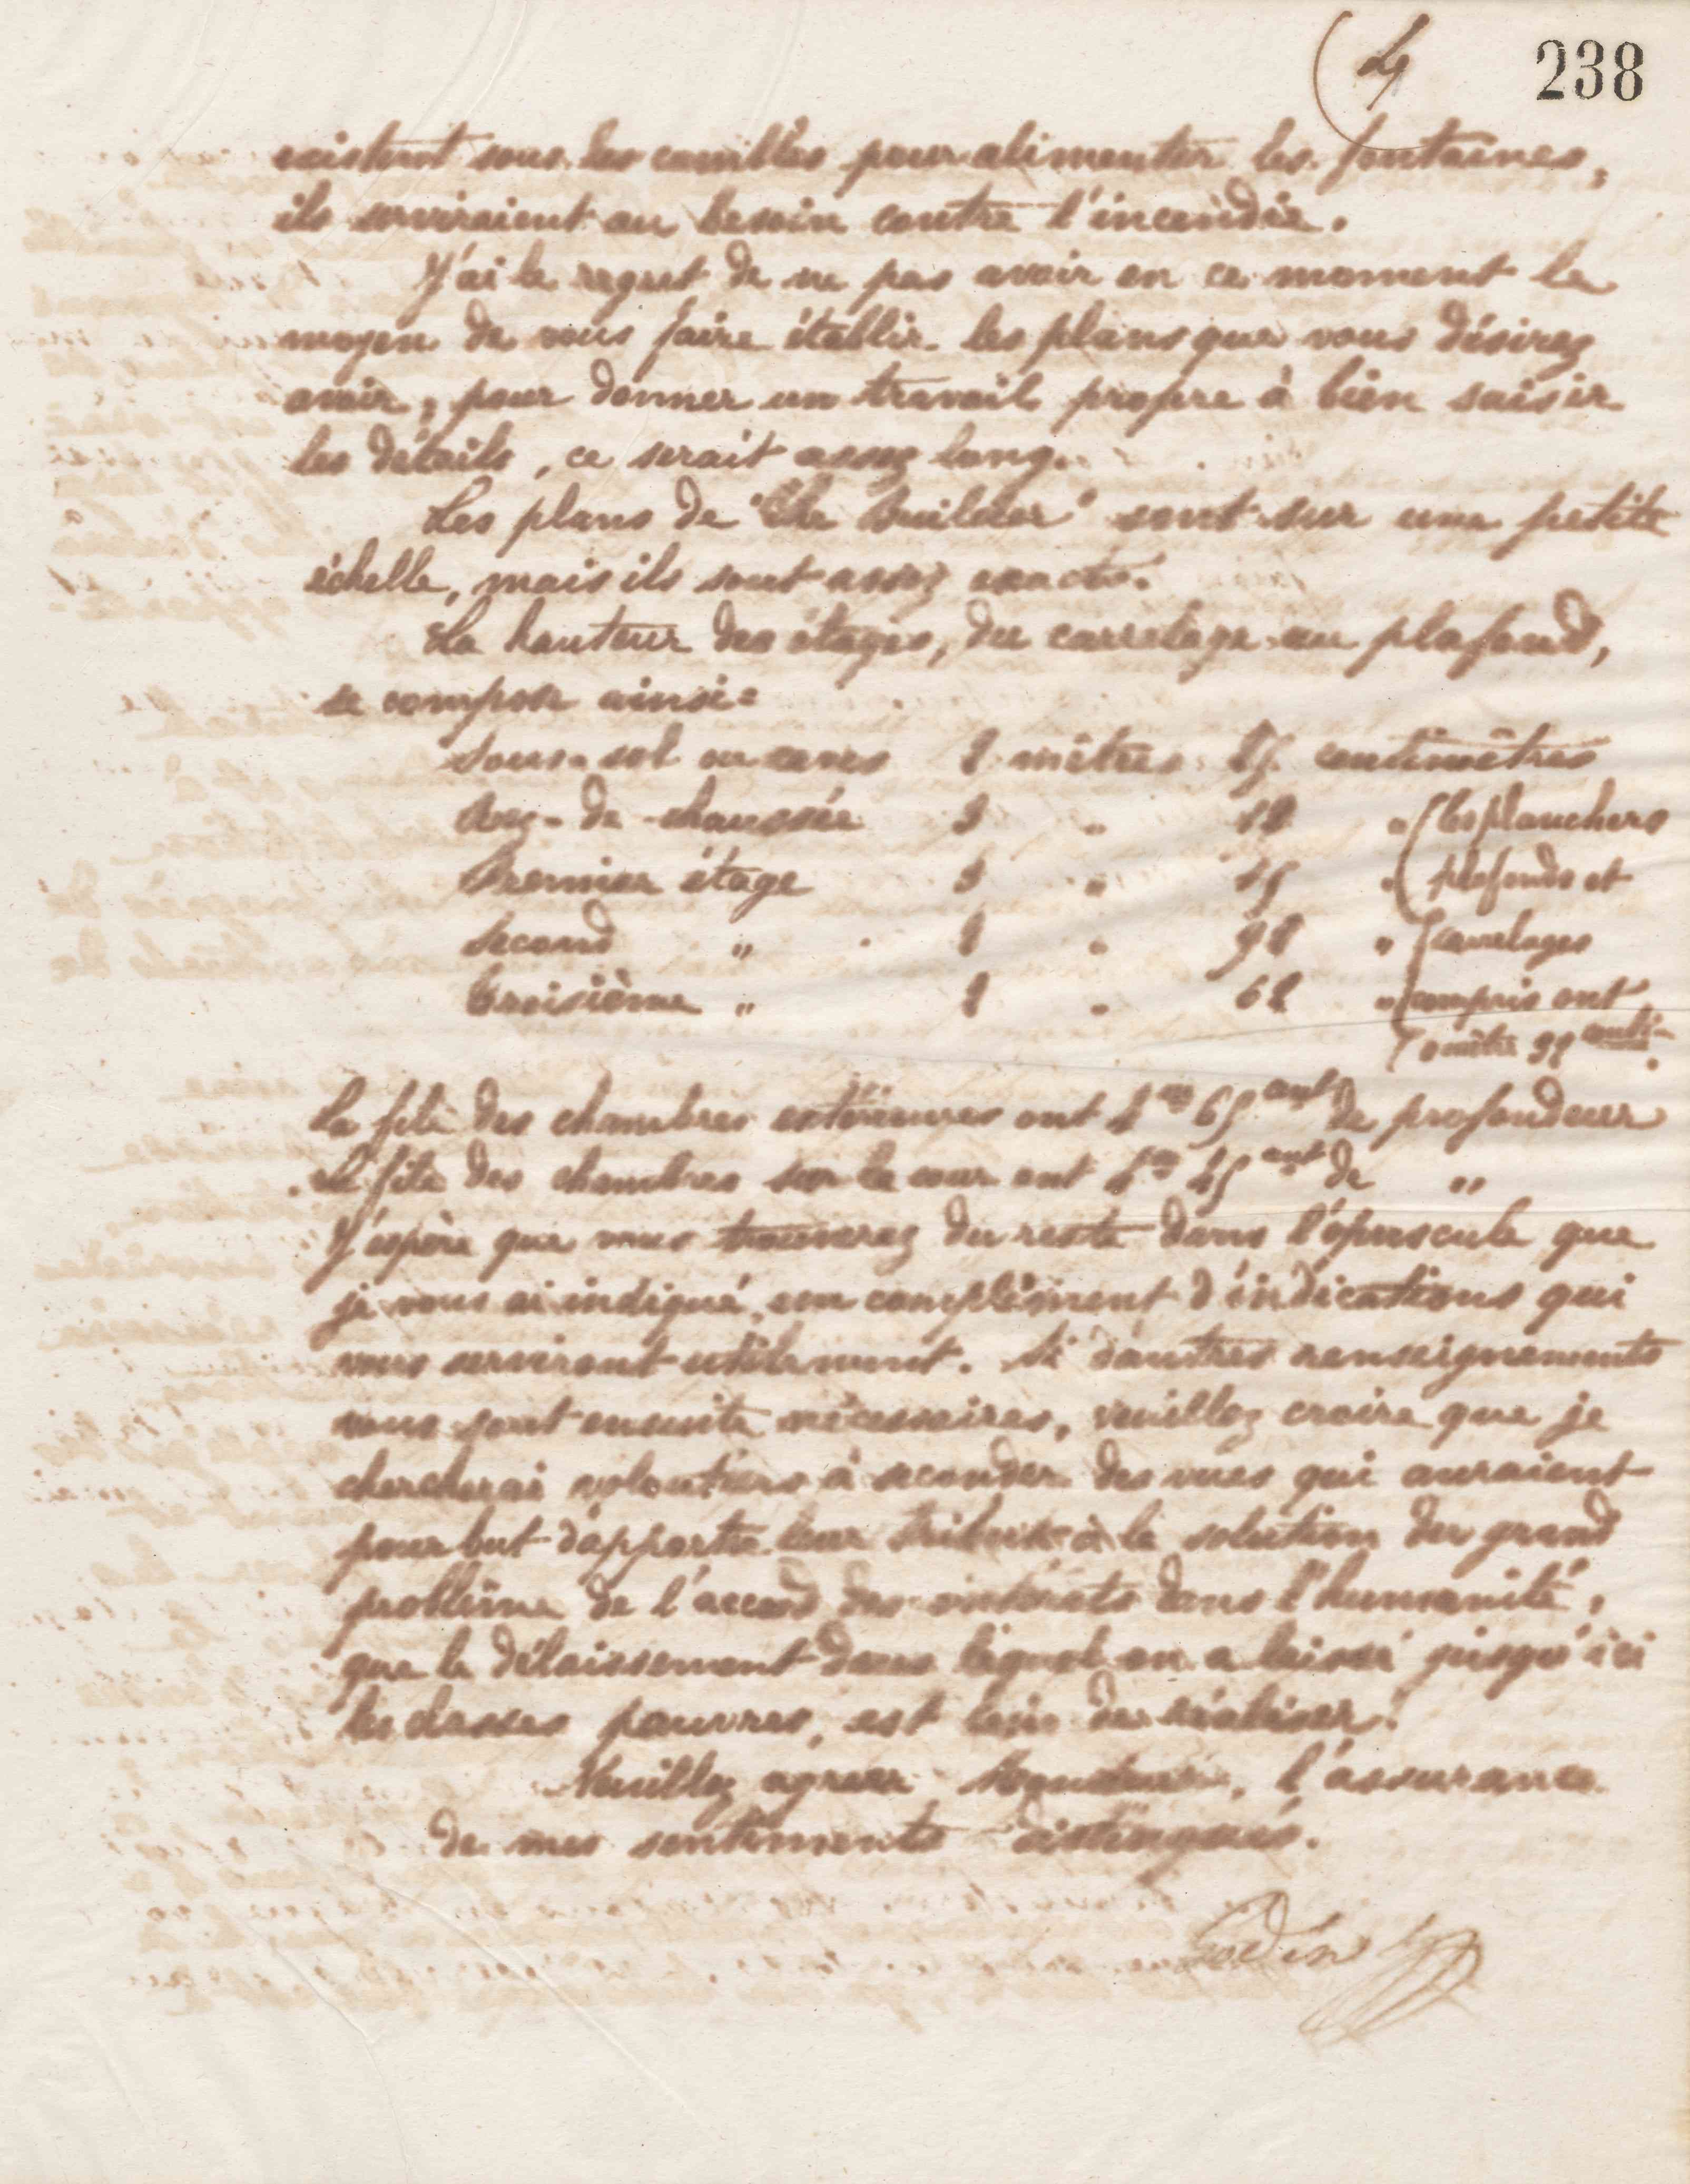 (4
238
existent sous les combles pour alimenter les fontaines,
ils serviraient au besoin contre l'incendie.
J'ai le regret de ne pas avoir en ce moment le
moyen de vous faire établir les plans que vous désirez
avoir, pour donner un travail propre à bien saisir
les détails, ce serait assez long.
Les plans de "The Builder" sont sur une petite
échelle, mais ils sont assez exacts.
La hauteur des étages, du carrelage au plafond,
se compose ainsi :
Sous-sol ou caves 2 mètres centimètres
Rez-de-chaussée 3 " " (les planchers
Premier étage 3 " 15 " plafonds et
Second " 2 " 98 " carrelages
Troisième " 2 " 62 " compris ont
0 mètre centi.
La file des chambres extérieures ont 4m 65 cent de profondeur
La file des chambres sur la cour ont 4m cent de "
J'espère que vous trouverez du reste dans l'opuscule que
je vous ai indiqué, un complément d'indications qui
vous serviront utilement. Si d'autres renseignements
vous sont ensuite nécessaires, veuillez croire que je
chercherai volontiers à seconder des vues qui auraient
pour but d'apporter leur tribut à la solution du grand
problème de l'accord des intérêts dans l'humanité,
que le délaissement dans lequel on a laissé jusqu'ici
les classes pauvres, est loin de réaliser.
Veuillez agréer Monsieur, l'assurance
de mes sentiments distingués.
Godin